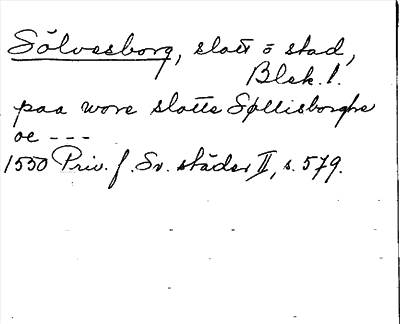 Sölvesborg, slott o stad,
Blek. l.
paa wore slotte Søllisborghe
oc ---
1550 Priv. f. Sv. städer II, s. 579.